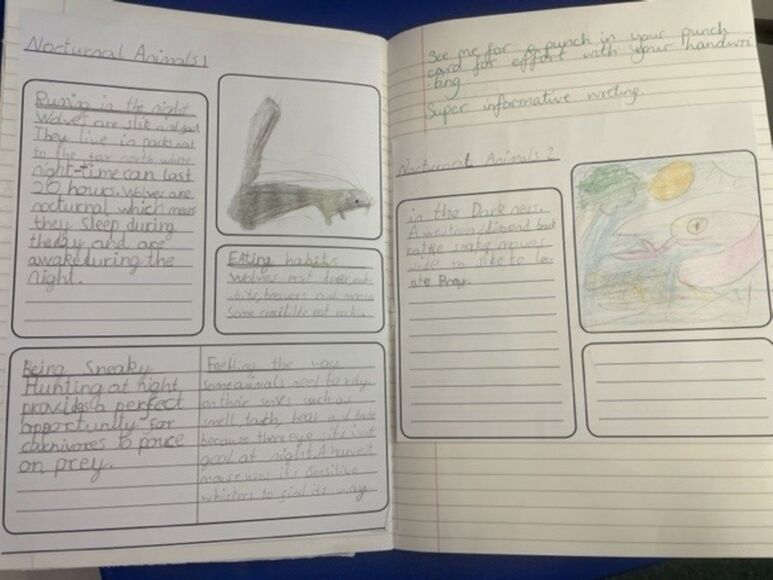 Nocturnal Animals 1
Runing in the night
Wolves are slik and fast
They live in packs out
to the far north where
night-time can last
20 hours. Wolves are
nocturnal which means
they sleep during
theday and are
awake during the
night.
Eating habits
Wolves eat deer, rab-
bits, beavers and
Some eat
Being Sneaky
Hunting at night
provides a perfect
opportunity for
carnivores to pounce
on prey.
Feelling the way
Some animals need to rely
on their senses such as
smell, touth, hear and taste
because there eye site isnt
good at night. A harvest
mouse uses its sensitive
whiskers to find its way
See me for a punch in your punch
card for effort with your handwri
-ting.
Super informative writing.
Nocturnal Animals 2
in the Dark ness.
A western dimend back
rattle moves
side to side to loc-
ate Prey.